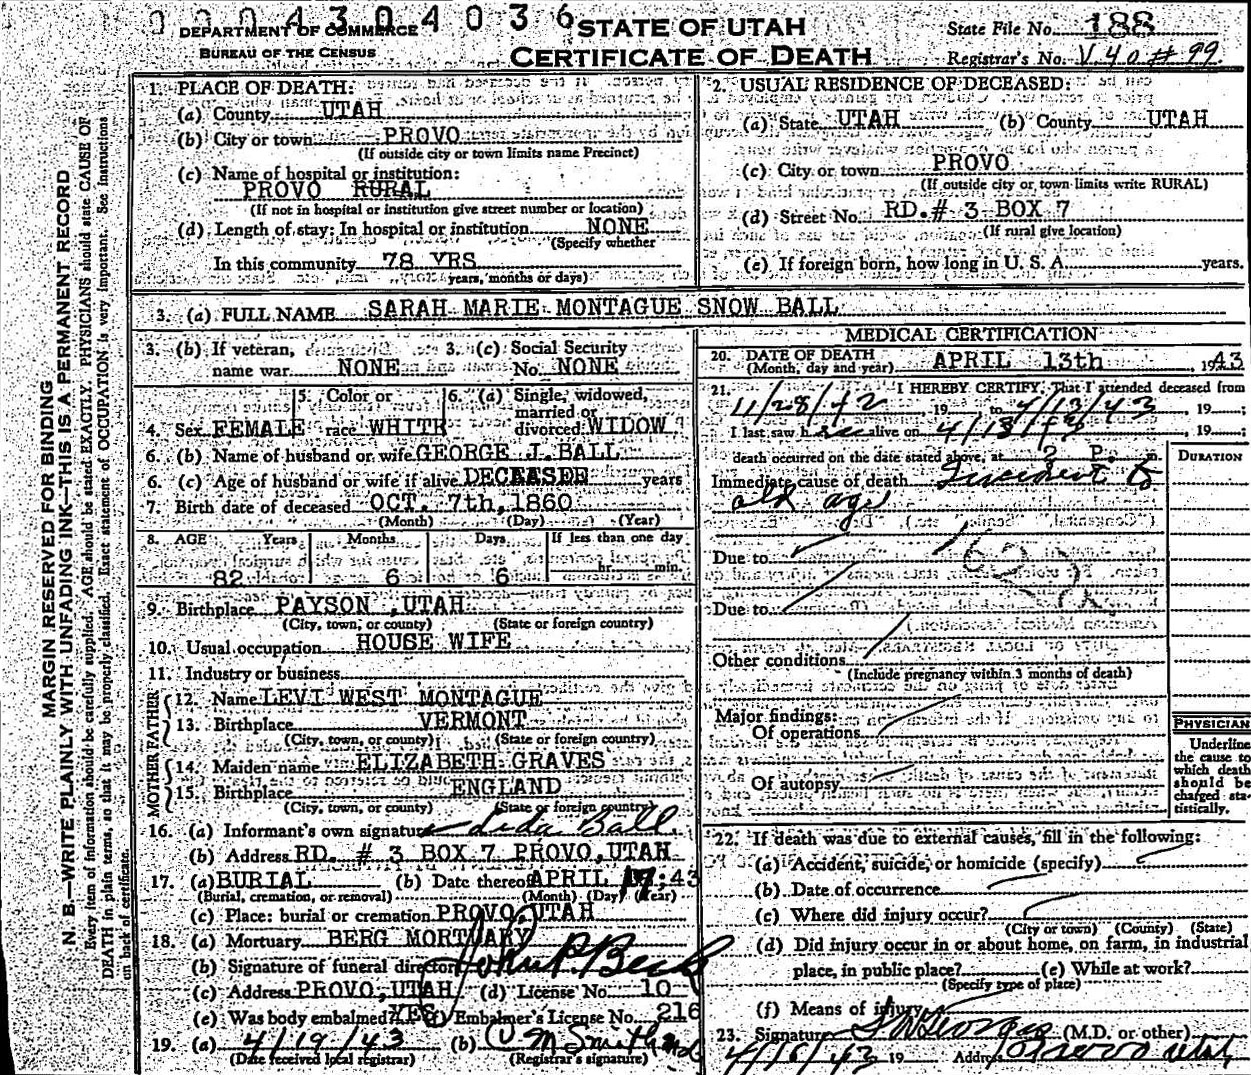 0004304036
DEPARTMENT OF COMMERCE
BUREAU OF THE CENSUS
STATE OF UTAH
CERTIFICATE OF DEATH
State File No. 188
Registrar's No. V.40 # 99.
MARGIN RESERVED FOR BINDING
N. B.—WRITE PLAINLY WITH UNFADING INK—THIS IS A PERMANENT RECORD
Every item of information should be carefully supplied. AGE should be stated EXACTLY. PHYSICIANS should state CAUSE OF
DEATH in plain terms, so that it may be properly classified. Exact statement of OCCUPATION is very important. See Instructions
on back of certificate.
1. PLACE OF DEATH:
(a) County UTAH
(b) City or town PROVO
(If outside city or town limits name Precinct)
(c) Name of hospital or institution:
PROVO RURAL
(If not in hospital or institution give street number or location)
(d) Length of stay: In hospital or institution NONE
(Specify whether
In this community 78 YRS
years, months or days)
2. USUAL RESIDENCE OF DECEASED:
(a) State UTAH (b) County UTAH
(c) City or town PROVO
(If outside city or town limits write RURAL)
(d) Street No. RD.# 3 BOX 7
(If rural give location)
(e) If foreign born, how long in U. S. A. years.
3. (a) FULL NAME SARAH MARIE MONTAGUE SNOW BALL
3. (b) If veteran, name war NONE
3. (c) Social Security No. NONE
4. Sex FEMALE
5. Color or race WHITE
6. (a) Single, widowed, married or divorced WIDOW
6. (b) Name of husband or wife GEORGE J. BALL
6. (c) Age of husband or wife if alive DECEASED years
7. Birth date of deceased OCT. 7th, 1860
(Month) (Day) (Year)
8. AGE Years Months Days If less than one day
82 6 6 hr. min.
9. Birthplace PAYSON ,UTAH
(City, town, or county) (State or foreign country)
10. Usual occupation HOUSE WIFE
11. Industry or business
FATHER
12. Name LEVI WEST MONTAGUE
13. Birthplace VERMONT
(City, town, or county) (State or foreign country)
MOTHER
14. Maiden name ELIZABETH GRAVES
15. Birthplace ENGLAND
(City, town, or county) (State or foreign country)
16. (a) Informant's own signature Leda Ball
(b) Address RD. # 3 BOX 7 PROVO, UTAH
17. (a) BURIAL (b) Date thereof APRIL 17, 43
(Burial, cremation, or removal) (Month) (Day) (Year)
(c) Place: burial or cremation PROVO, UTAH
18. (a) Mortuary BERG MORTUARY
(b) Signature of funeral director
(c) Address PROVO, UTAH (d) License No. 10
(e) Was body embalmed? YES (f) Embalmer's License No. 216
19. (a) 4/19/43 (b) Smith
(Date received local registrar) (Registrar's signature)
MEDICAL CERTIFICATION
20. DATE OF DEATH APRIL 13th, 1943
(Month, day and year)
21. I HEREBY CERTIFY, That I attended deceased from
11/28/42, 19 to 4/13/43, 19 ;
I last saw her alive on 4/13/43, 19 ;
death occurred on the date stated above, at 2 P. m.
DURATION
Immediate cause of death Incident to
old age
Due to
Due to
Other conditions
(Include pregnancy within 3 months of death)
Major findings:
Of operations
Of autopsy
PHYSICIAN
Underline
the cause to
which death
should be
charged sta-
tistically.
22. If death was due to external causes, fill in the following:
(a) Accident, suicide, or homicide (specify)
(b) Date of occurrence
(c) Where did injury occur?
(City or town) (County) (State)
(d) Did injury occur in or about home, on farm, in industrial
place, in public place? (e) While at work?
(Specify type of place)
(f) Means of injury
23. Signature (M.D. or other)
4/16/43 19 Address Provo Utah